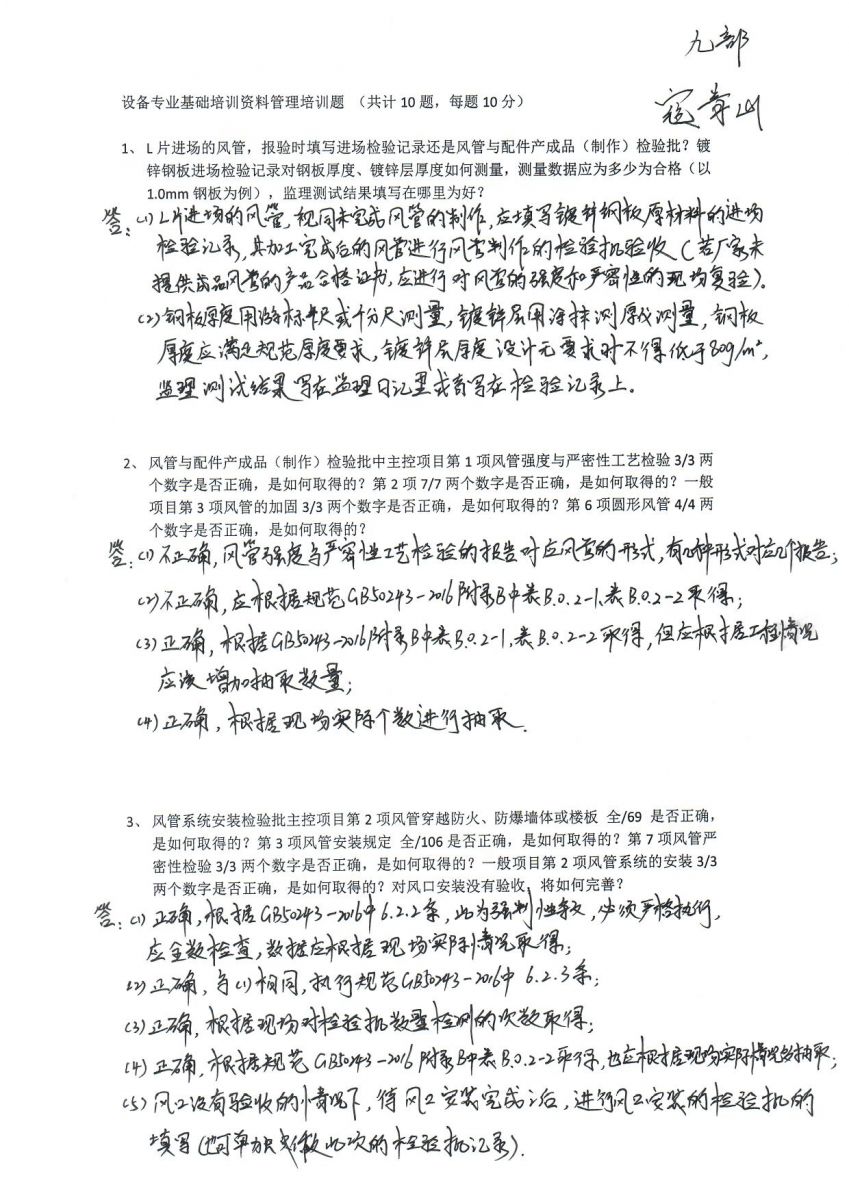 九部
寇春山
设备专业基础培训资料管理培训题 （共计10题，每题10分）
1、 L片进场的风管，报验时填写进场检验记录还是风管与配件产成品（制作）检验批？镀
锌钢板进场检验记录对钢板厚度、镀锌层厚度如何测量，测量数据应为多少为合格（以
1.0mm 钢板为例），监理测试结果填写在哪里为好？
答：(1) L片进场的风管，视同未完成风管的制作，应填写镀锌钢板原材料的进场
检验记录，其加工完成后的风管进行风管制作的检验批验收（若厂家未
提供成品风管的产品合格证书，应进行对风管的强度和严密性的现场复验）。
(2) 钢板厚度用游标卡尺或千分尺测量，镀锌层用涂抹测厚仪测量，钢板
厚度应满足规范厚度要求，镀锌层厚度设计无要求时不得低于80g/m²，
监理测试结果写在监理日记里或者写在检验记录上。
2、 风管与配件产成品（制作）检验批中主控项目第1项风管强度与严密性工艺检验 3/3 两
个数字是否正确，是如何取得的？第2项7/7 两个数字是否正确，是如何取得的？一般
项目第3项风管的加固 3/3 两个数字是否正确，是如何取得的？第6项圆形风管 4/4 两
个数字是否正确，是如何取得的？
答：(1) 不正确，风管强度与严密性工艺检验的报告对应风管的形式，有几种形式对应几个报告；
(2) 不正确，应根据规范GB50243-2016附录B中表B.0.2-1、表B.0.2-2取得；
(3) 正确，根据GB50243-2016附录B中表B.0.2-1，表B.0.2-2取得，但应根据工程情况
应该增加抽取数量；
(4) 正确，根据现场实际个数进行抽取.
3、 风管系统安装检验批主控项目第2项风管穿越防火、防爆墙体或楼板 全/69 是否正确，
是如何取得的？第3项风管安装规定 全/106 是否正确，是如何取得的？第7项风管严
密性检验 3/3 两个数字是否正确，是如何取得的？一般项目第2项风管系统的安装 3/3
两个数字是否正确，是如何取得的？对风口安装没有验收，将如何完善？
答：(1) 正确，根据GB50243-2016中6.2.2条，此为强制性条文，必须严格执行，
应全数检查，数据应根据现场实际情况取得；
(2) 正确，与(1)相同，执行规范GB50243-2016中 6.2.3条；
(3) 正确，根据现场对检验批数量检测的次数取得；
(4) 正确，根据规范GB50243-2016附录B中表B.0.2-2取得，也应根据现场实际情况多抽取；
(5) 风口没有验收的情况下，待风口安装完成之后，进行风口安装的检验批的
填写（也可单独只做此次的检验批记录）.